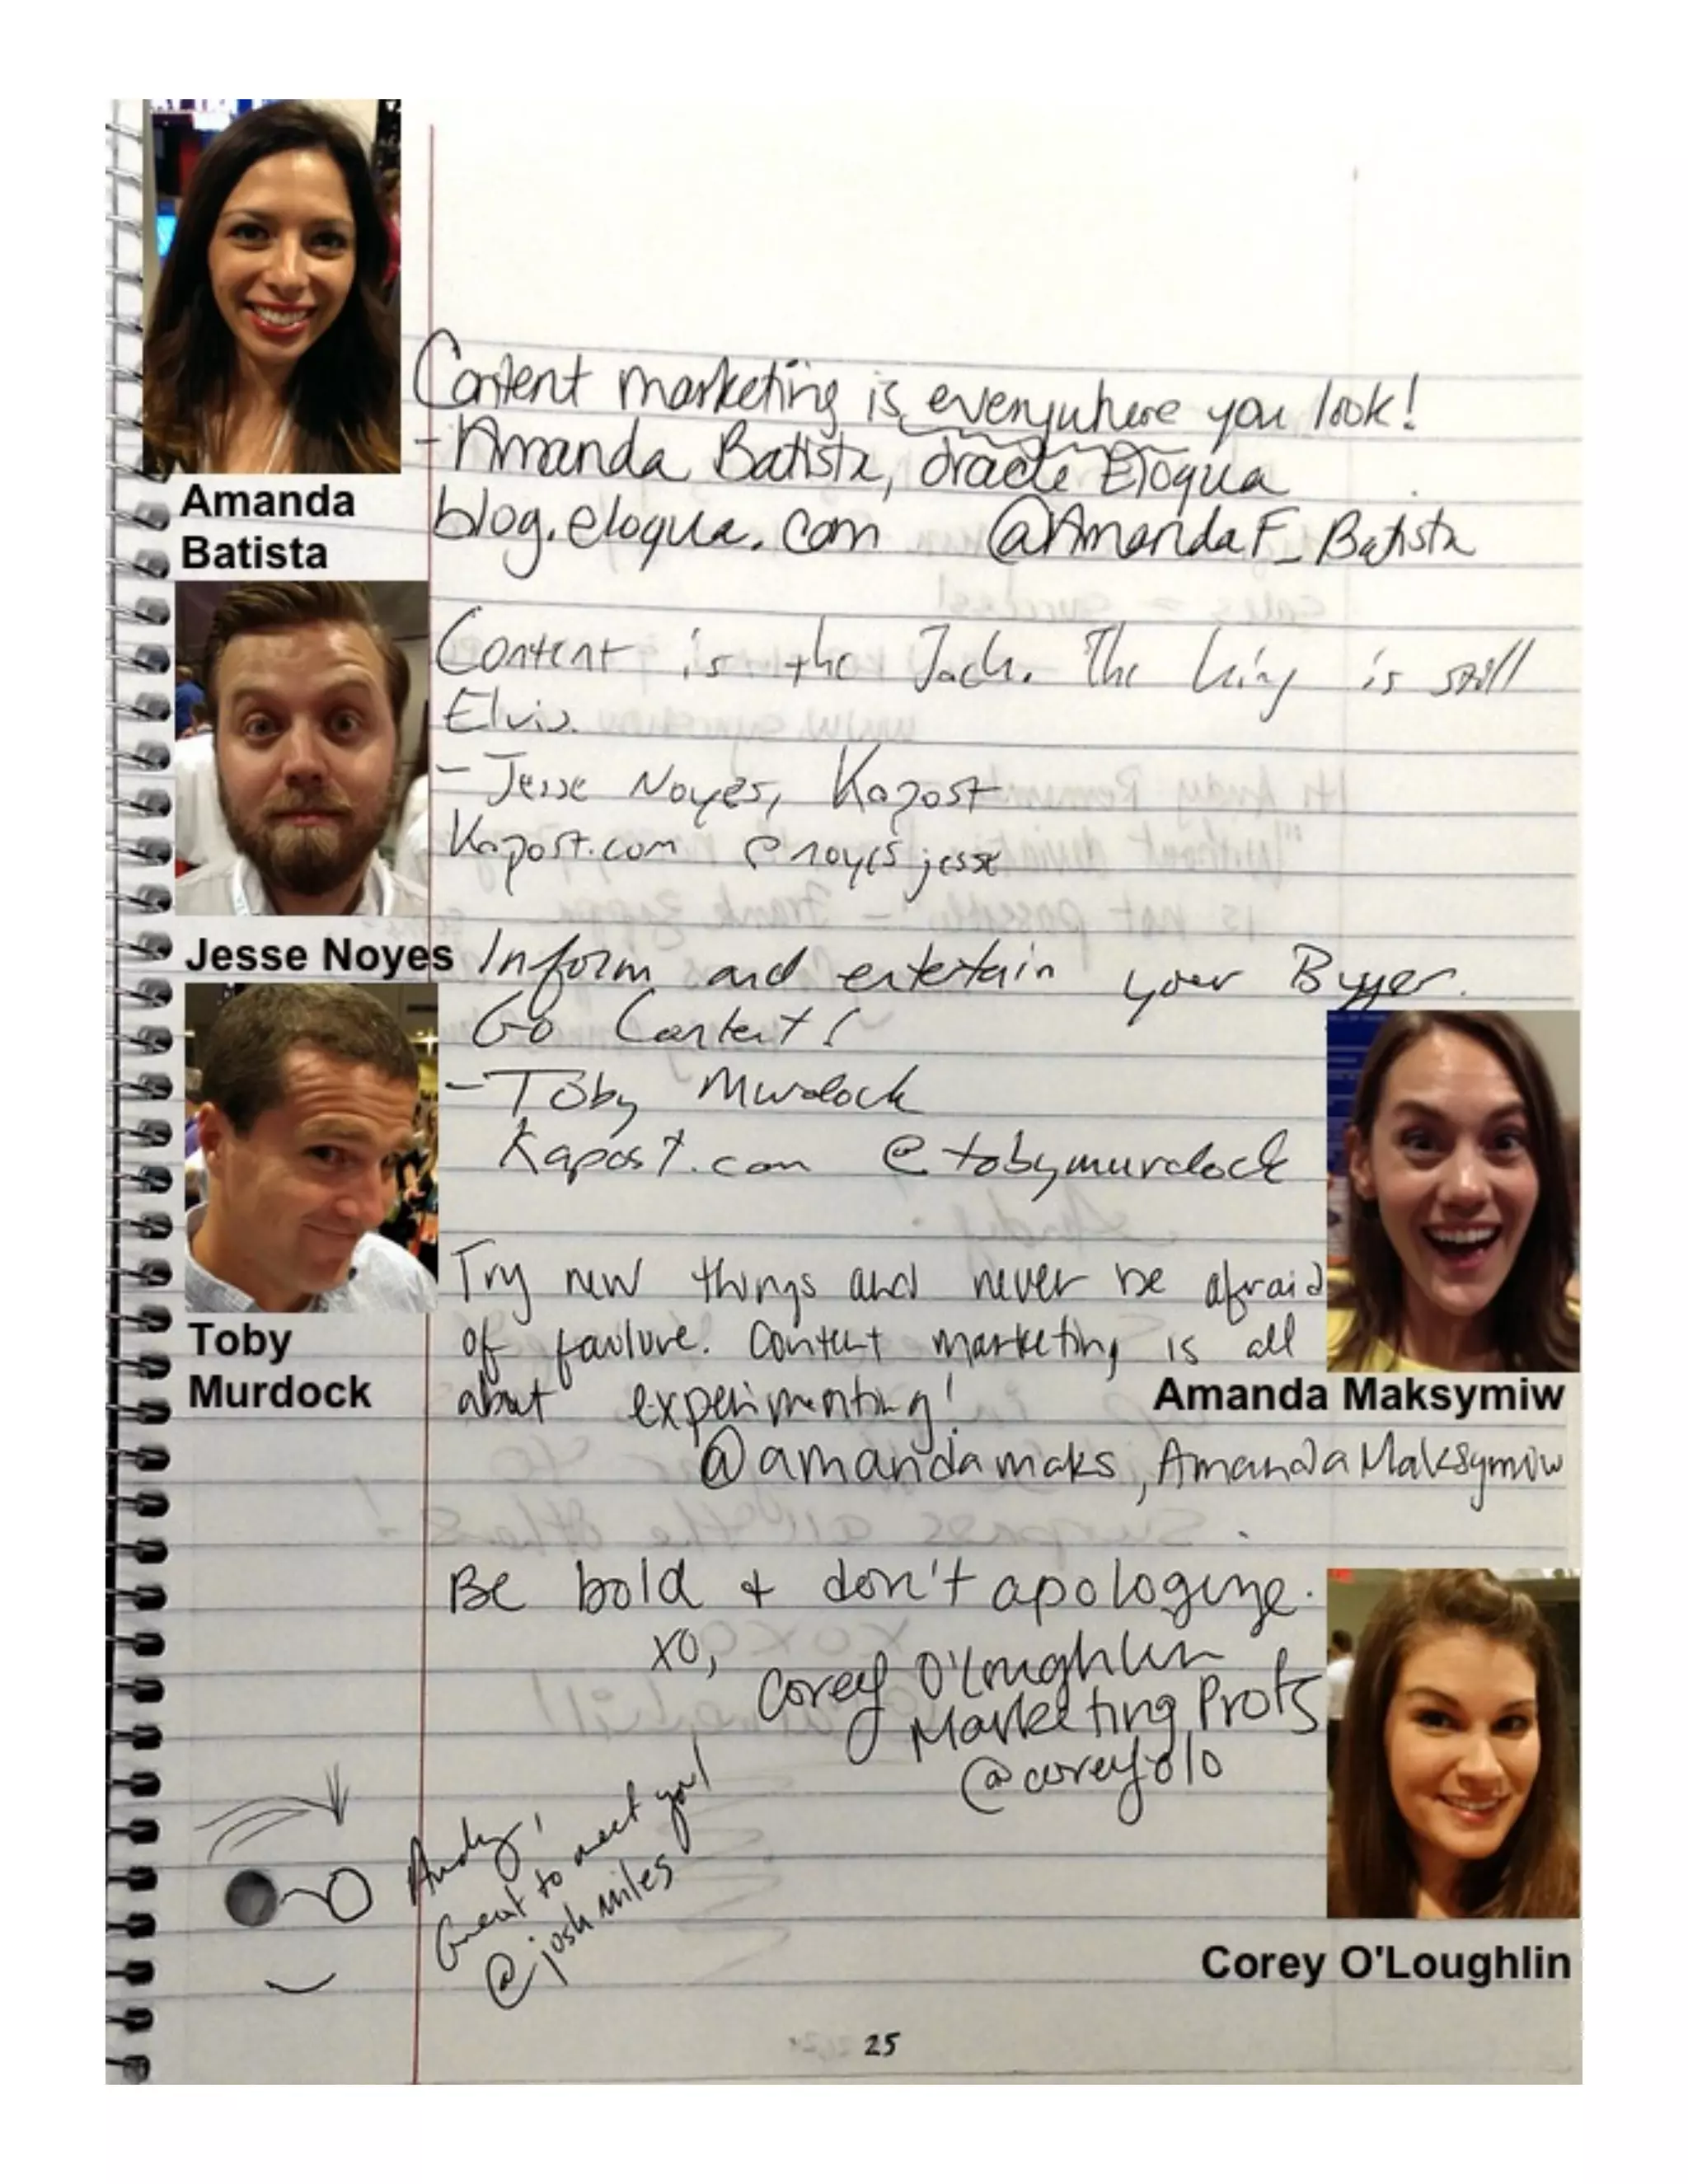 Content marketing is everywhere you look!
-Amanda Batista, Oracle Eloqua
blog.eloqua.com @AmandaF_Batista
Amanda
Batista
Content is the Jack. The king is still
Elvis.
- Jesse Noyes, Kapost
Kapost.com @noyesjesse
Jesse Noyes
Inform and entertain your Buyer.
Go Content!
- Toby Murdock
Kapost.com @tobymurdock
Toby
Murdock
Try new things and never be afraid
of failure. Content marketing is all
about experimenting!
Amanda Maksymiw
@amandamaks, Amanda Maksymiw
Be bold + don't apologize.
XO,
Corey O'Loughlin
Marketing Profs
@coreyolo
Corey O'Loughlin
Andy,
Great to meet you!
@joshmiles
25